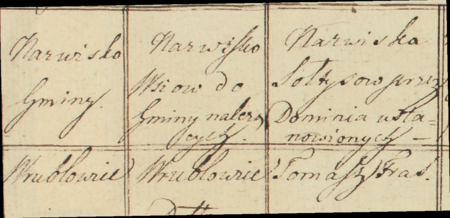 Narwisko
Gminy.
Narwisko
Wsiow do
Gminy należą
cych.
Narwiska
Sołtysow przez
Dominia usta
nowionych —
Wrublowice
Wrublowice
Tomasz Fras.